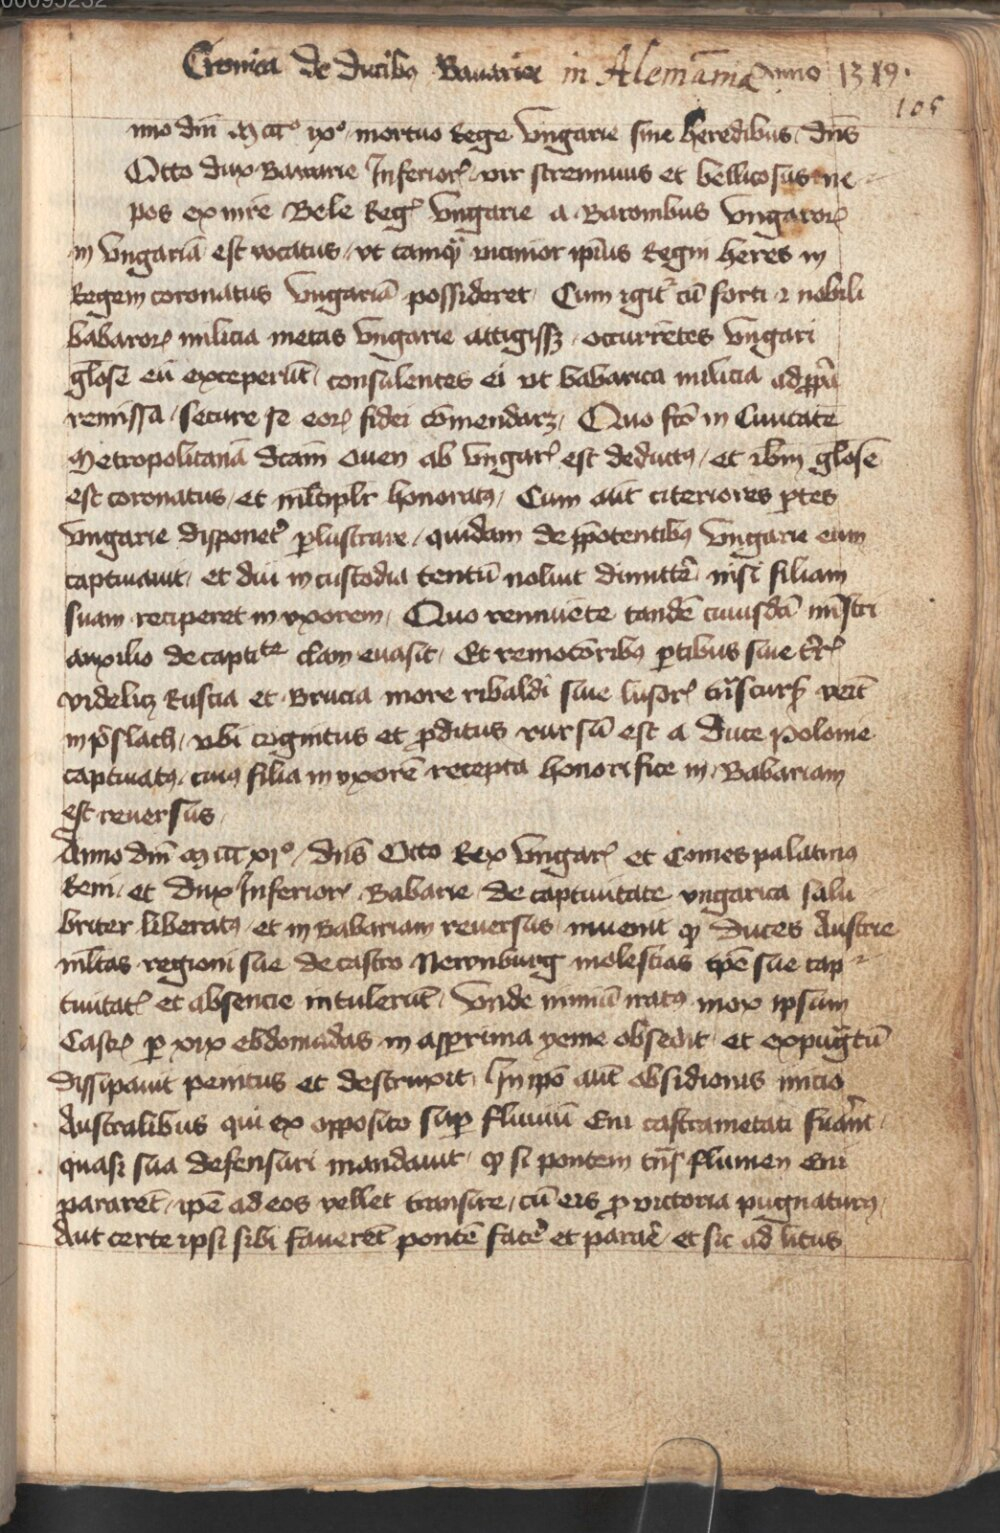 00095232
Cronica de ducibꝫ Bauarie in Alemãnia Anno 1319.
105
nno dm̄ Mccc° ix° mortuo Rege Vngarie sine heredibus dn̄s
Otto dux Bawarie Inferiorꝭ vir strennuus et bellicosus ne
pos ex mr̄e Bele Regꝭ Vngarie a Baronibus Vngarorꝝ
in Vngariā est vocatus vt tamqᷓ vicinior ip̄ius Regni heres in
Regem coronatus Vngariā possideret Cum igit̉ cū forti ⁊ nobili
babarorꝝ milicia metas Vngarie attigissꝫ occurrētes Vngari
gl̄ose eū exceperūt consulentes ei vt babarica milicia ad ꝓp̄a
remissa secure se eorꝝ fidei cōmendarꝫ Quo fc̄o in Ciuitatē
Metropolitanā dc̄am Ouen ab Vngarꝭ est deductꝰ et ibm̄ gl̄ose
est coronatus et ml̄tiplr̄ honoratꝰ Cum aūt citeriores ꝑtes
Vngarie disponet̉ ꝑlustrare quidam de p̄potentibꝫ Vngarie eum
captiuauit et diu in custodia tentū noluit dimittẻ nisi filiam
suam reciperet in vxorem Quo rennuēte tandē cuiusdā mīstri
auxilio de captite clam euasit Et remotōribꝫ ꝑtibus siue t̉rꝭ
videlicꝫ Ruscia et Brucia more ribaldi siue lusorꝭ trᷓscursꝭ veīt
in p̄slach vbi cognitus et ꝓditus rursū est a duce Polonie
captiuatꝰ cuiꝰ filia in vxorē recepta honorifice in Babariam
est reuersus
Anno dm̄ Mccc xi° dn̄s Otto Rex Vngarꝭ et Comes palatinꝰ
Reni et dux Inferiorꝭ Babarie de captiuitate vngarica salu
briter liberatꝰ et in Babariam reuersus inuenit qꝫ duces Austrie
ml̄tas regioni sue de castro Newnburg molestias tꝑe sue cap
tiuitatꝭ et absencie intulerūt Vnde nimiū iratꝰ mox ipsum
Castrꝭ ꝑ xix ebdomadas in asperima yeme obsedit et expugᷓtū
dissipauit penitus et destruxit In ip̄o aūt obsidionis inicio
Australibus qui ex opposito suꝑ fluuiū Eni castrametati fu̓ant
quasi sua defensuri mandauit qꝫ si pontem trᷓs flumen Eni
pararēt ip̄e ad eos vellet transire cū eis ꝓ victoria pugnaturꝰ
Aut certe ipsi sibi fauerēt pontē face̓ et para̓e et sic ad litus